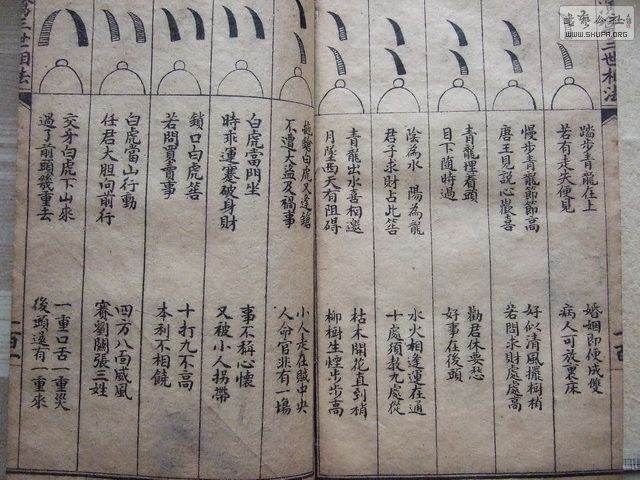 三世相法
踏步青龍在上
若有走失便見
婚姻即便成雙
病人可放裏床
慢步青龍節節高
唐王見説心歡喜
好似清風擺樹梢
若問求財處處高
青龍埋着頭
目下随時過
勸君休要愁
好事在後頭
陰為水 陽為龍
君子求財占此筶
水火相逢運在通
十處須教九處從
青龍出水喜相邀
月墜西天有阻碍
枯木開花直到梢
柳樹生煙步步高
鎗白虎又逢鎗
不遭大盜及禍事
小人走在賊中央
人命官非有一場
白虎當門坐
時乖運蹇破身財
事不稱心懷
又被小人拐帶
鎖口白虎筶
若問買賣事
十打九不高
本利不相饒
白虎當山行動
任君大胆向前行
四方八面威風
賽劉關張三姓
交身白虎下山來
過了前頭幾重去
一重口舌一重災
後頭還有一重來
三世相法
一百一
WWW.SHUFA.ORG